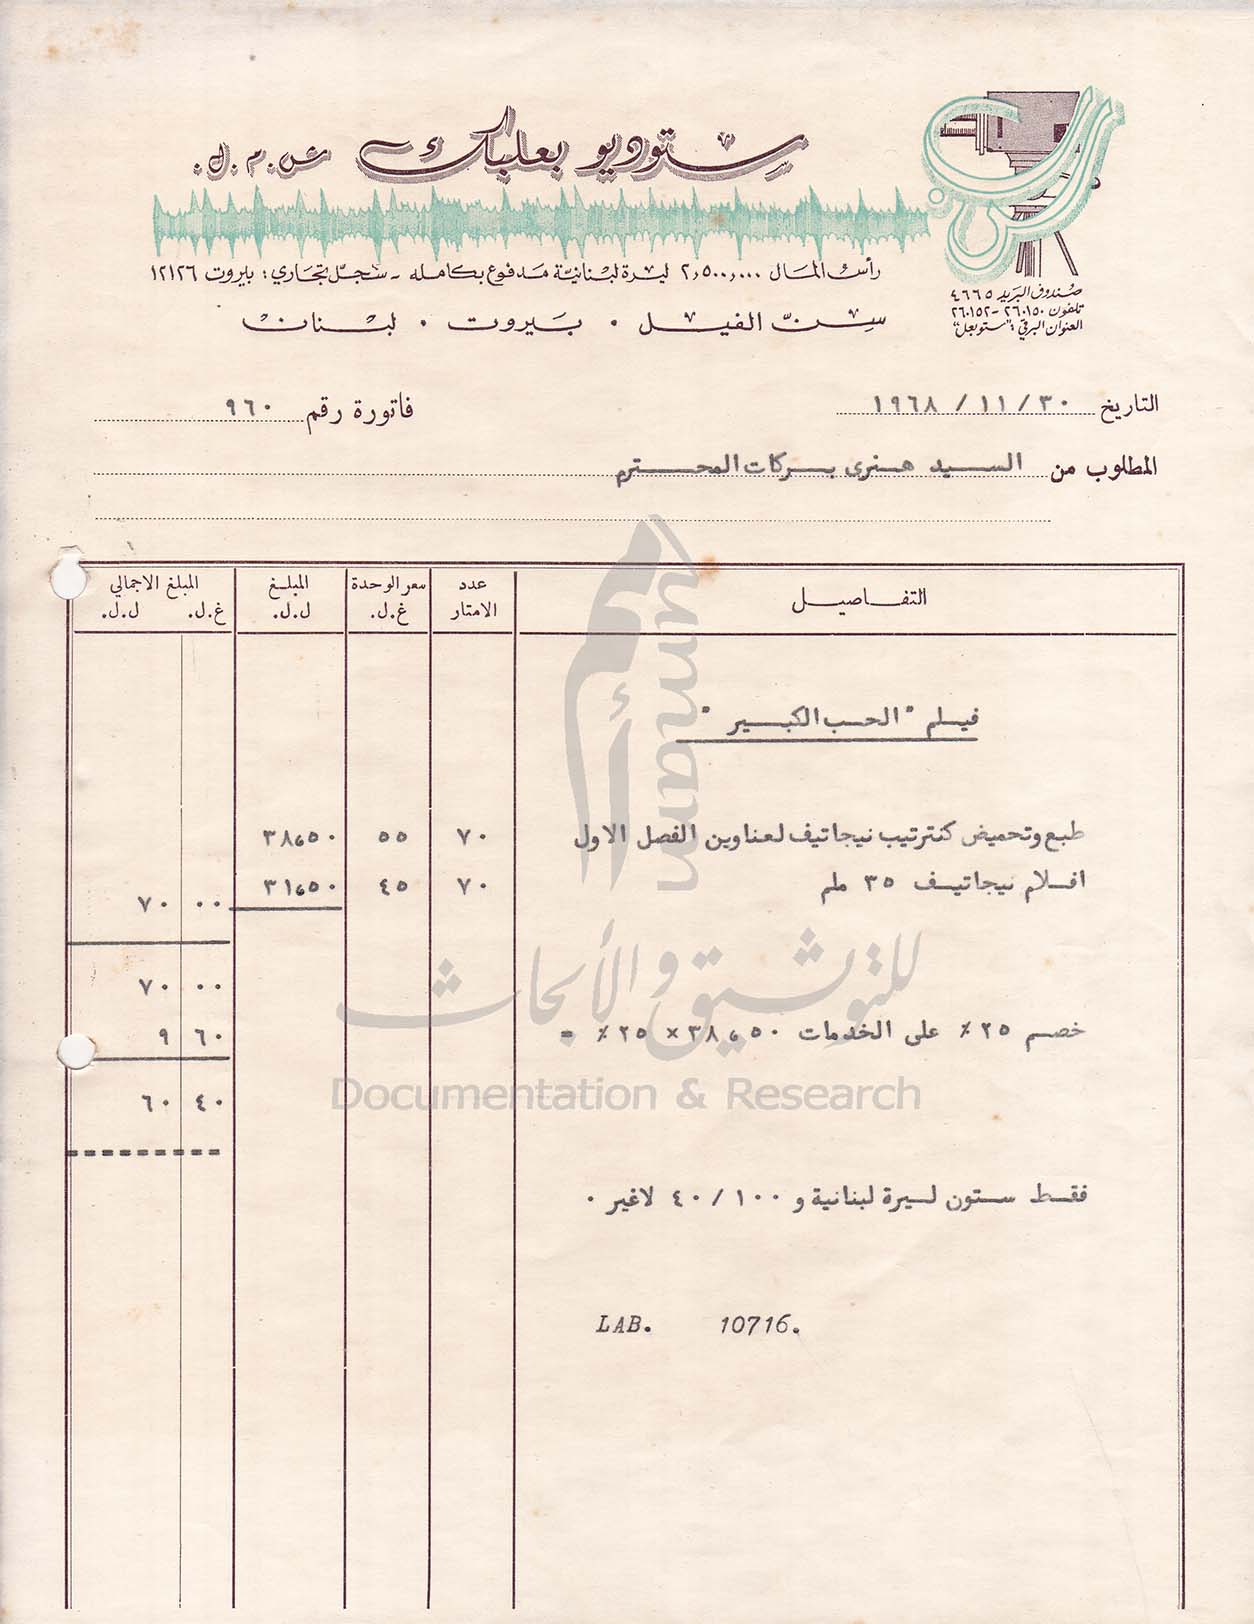 ستوديو بعلبك ش.م.ل.
رأس المال ٢,٥٠٠,٠٠٠ ليرة لبنانية مدفوع بكامله - سجل تجاري: بيروت ١٢١٢٦
سن الفيل . بيروت . لبنان
صندوق البريد ٤٦٦٥
تلفون ٢٦٠١٥٠ - ٢٦٠١٥٢
العنوان البرقي: "ستوبعل"
التاريخ ٣٠ / ١١ / ١٩٦٨ فاتورة رقم ٩٦٠
المطلوب من السيد هنرى بركات المحترم
التفاصيل عدد الامتار سعر الوحدة غ.ل. المبلغ ل.ل. المبلغ الاجمالي غ.ل. ل.ل.
فيلم "الحب الكبير"
طبع وتحميض كنترتيب نيجاتيف لعناوين الفصل الاول ٧٠ ٥٥ ٣٨،٥٠
افلام نيجاتيف ٣٥ ملم ٧٠ ٤٥ ٣١،٥٠
٠٠ ٧٠
٠٠ ٧٠
خصم ٢٥٪ على الخدمات ٣٨،٥٠ × ٢٥٪ = ٦٠ ٩
٤٠ ٦٠
فقط ستون ليرة لبنانية و ١٠٠ / ٤٠ لاغير .
LAB. 10716.
أمم
umam
للتوثيق والأبحاث
Documentation & Research